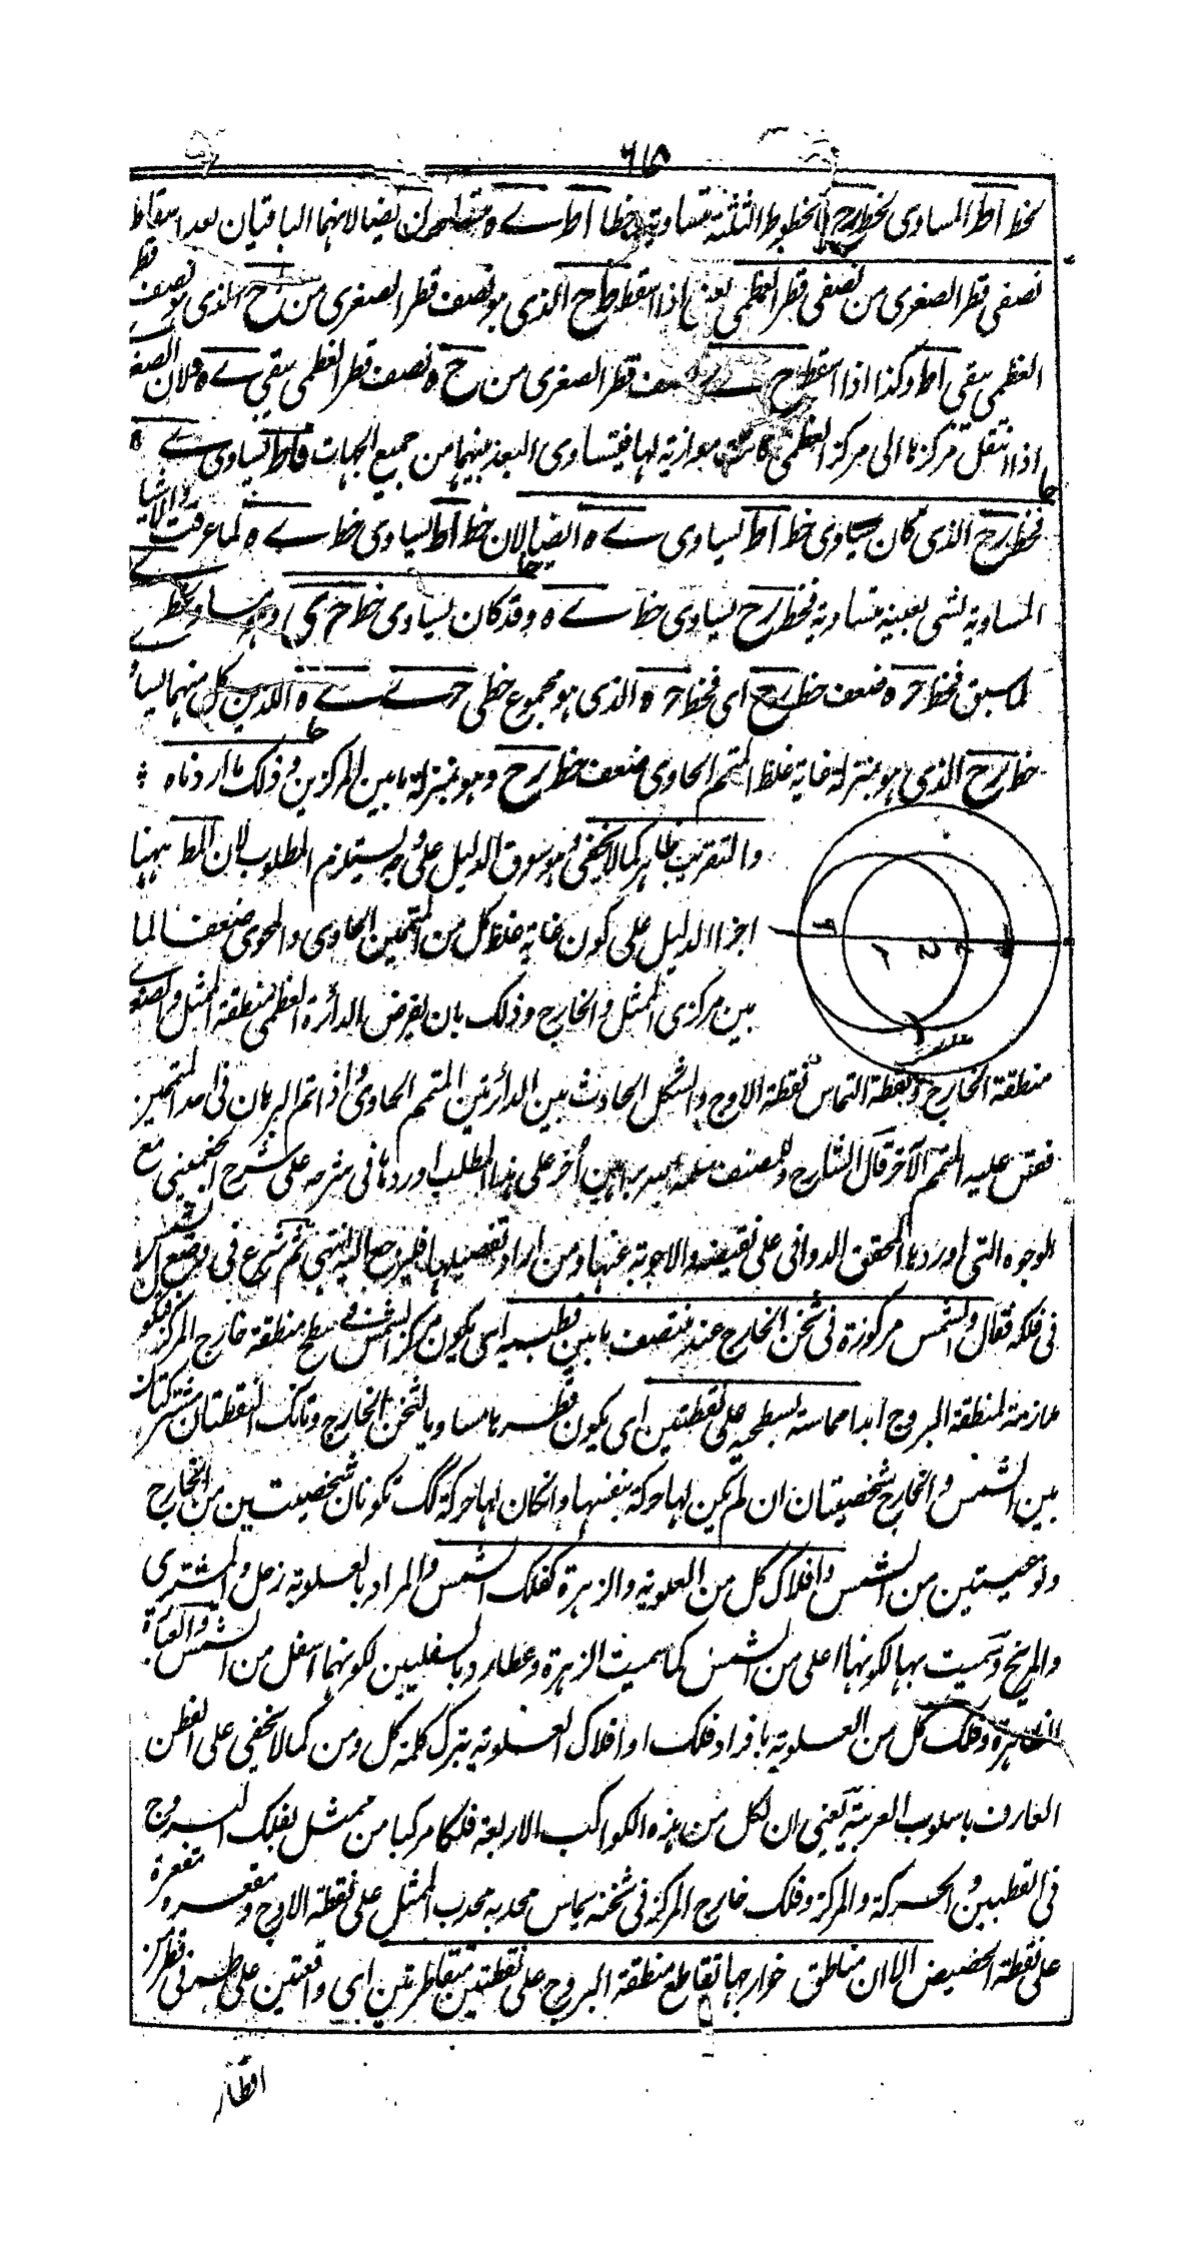 ٦١٥
لخط اط المساوى لخط رح فالخطوط الثلثة متساوية وخطا اط ے ه متساويان ايضا لانهما الباقيان بعد اسقاط
نصفى قطر الصغرى من نصفى قطر العظمى يعنى اذا اسقط طح الذى هو نصف قطر الصغرى من اح الذى هو نصف قطر
العظمى يبقى اط وكذا اذا اسقط ح ے نصف قطر الصغرى من ح ه نصف قطر العظمى يبقى ے ه ولان الصغرى
اذا انتقل مركزها الى مركز العظمى كانت موازية لها فيتساوى البعد بينهما من جميع الجهات فاط يساوى ے ه
فخط رح الذى كان يساوى خط اط يساوى ے ه ايضا لان خط اط يساوى خط ے ه لما عرفت والاشياء
المساوية لشى بعينه متساوية فخط رح يساوى خط ے ه وقد كان يساوى خط حرى
لما سبق فخط حر ه ضعف خط رح اى فخط حر ه الذى هو مجموع خطى حر ے ے ه اللذين كل منهما يساوى
خط رح الذى هو بمنزلة غاية غلظ المتمم الحاوى ضعف خط رح وهو بمنزلة ما بين المركزين وذلك ما اردناه
والتقريب ظاهر كما لا يخفى وهو سوق الدليل على وجه يستلزم المطلوب لان المط ههنا
اجزاء الدليل على كون غاية غلظ كل من المتممين الحاوى والمحوى ضعفا لما
بين مركزى الممثل والخارج وذلك بان يفرض الدائرة العظمى منطقة الممثل والصغرى
منطقة الخارج ونقطة التماس نقطة الاوج والشكل الحادث بين الدائرتين المتمم الحاوى واذا تم البرهان فى احد المتممين
فقس عليه المتمم الآخر قال الشارح وللمصنف سلمه الله براهين اخر على هذا المطلب اوردها فى شرحه على شرح الجغمينى مع
الوجوه التى اوردها المحقق الدوانى على نقيضه والاجوبة عنها ومن اراد تفصيلها فليرجع اليه انتهى ثم شرع فى وضع الشمس
فى فلكه فقال والشمس مركوزة فى ثخن الخارج عند منتصف ما بين قطبيه اى يكون مركز الشمس فى سطح منطقة خارج المركز فتكون
ملازمة لمنطقة البروج ابدا مماسة لسطحيه على نقطتين اى يكون قطرها مساويا لثخن الخارج وتانك النقطتان مشتركتان
بين الشمس والخارج شخصيتان ان لم يكن لها حركة بنفسها وان كان لها حركة كك تكونان شخصيتين من الخارج
ونوعيتين من الشمس وافلاك كل من العلوية والزهرة كفلك الشمس والمراد بالعلوية زحل والمشترى
والمريخ وسميت بها لكونها اعلى من الشمس كما سميت الزهرة وعطارد بالسفليين لكونهما اسفل من الشمس والعبارة
الظاهرة وفلك كل من العلوية بافراد فلك او افلاك العلوية بترك كلمة كل ومن كما لا يخفى على الفطن
العارف باسلوب العربية يعنى ان لكل من هذه الكواكب الاربعة فلكا مركبا من ممثل لفلك البروج
فى القطبين والحركة والمركز وفلك خارج المركز فى ثخنه يماس محدبه محدب الممثل على نقطة الاوج ومقعره مقعره
على نقطة الحضيض الا ان مناطق خوارجها تقاطع منطقة البروج على نقطتين متقاطرتين اى واقعتين على طرفى قطر من
اقطار